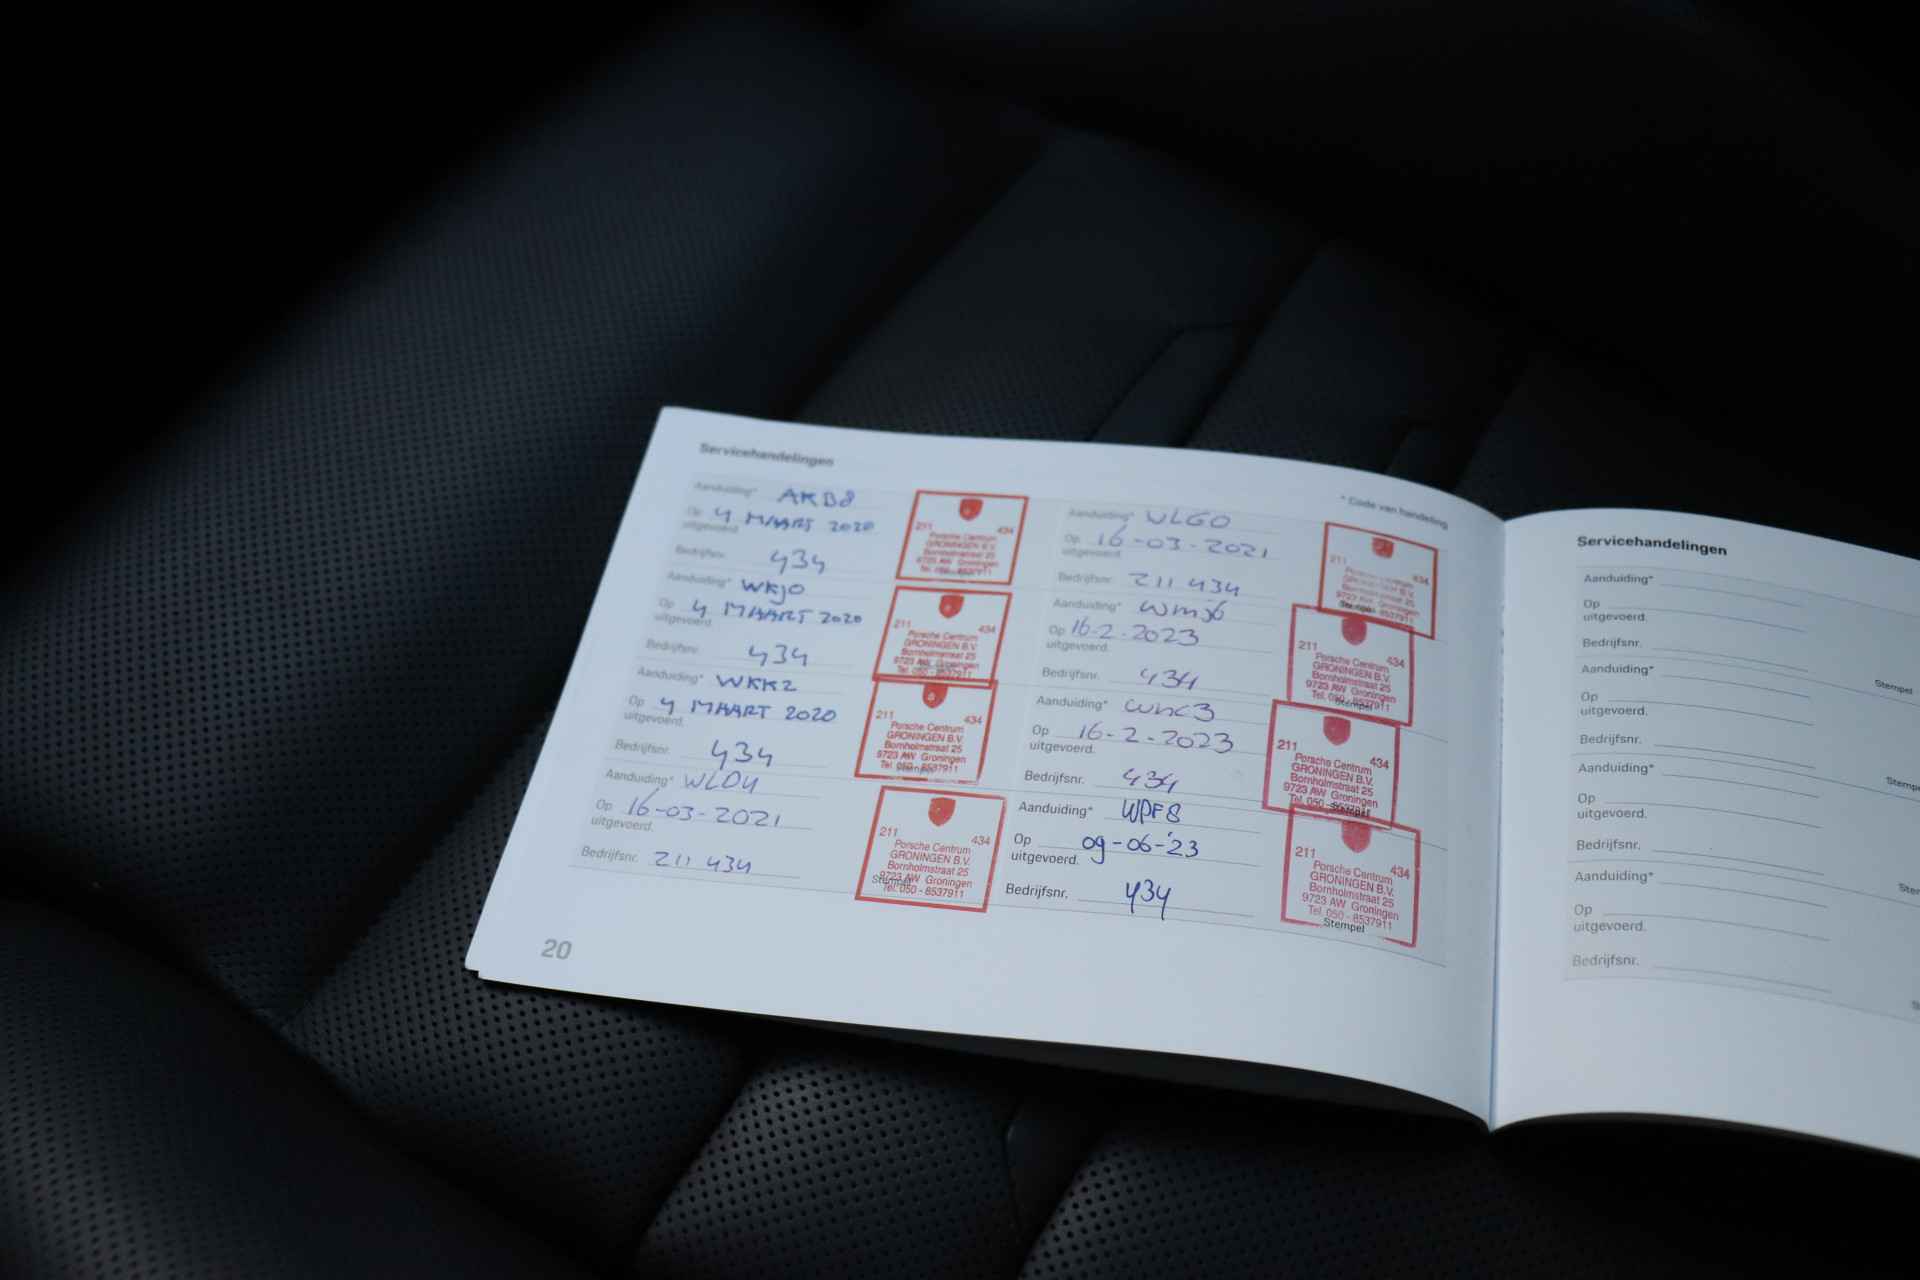 Servicehandelingen
* Code van handeling
Aanduiding* AKB8
Op 4 MAART 2020
uitgevoerd.
Bedrijfsnr. 434
211 434
Porsche Centrum
GRONINGEN B.V.
Bornholmstraat 25
9723 AW Groningen
Tel. 050 - 8537911
Aanduiding* WKJ0
Op 4 MAART 2020
uitgevoerd.
Bedrijfsnr. 434
211 434
Porsche Centrum
GRONINGEN B.V.
Bornholmstraat 25
9723 AW Groningen
Tel. 050 - 8537911
Aanduiding* WKK2
Op 4 MAART 2020
uitgevoerd.
Bedrijfsnr. 434
211 434
Porsche Centrum
GRONINGEN B.V.
Bornholmstraat 25
9723 AW Groningen
Tel. 050 - 8537911
Stempel
Aanduiding* WLD4
Op 16-03-2021
uitgevoerd.
Bedrijfsnr. 211 434
211 434
Porsche Centrum
GRONINGEN B.V.
Bornholmstraat 25
9723 AW Groningen
Tel. 050 - 8537911
Stempel
Aanduiding* WLG0
Op 16-03-2021
uitgevoerd.
Bedrijfsnr. 211 434
211 434
Porsche Centrum
GRONINGEN B.V.
Bornholmstraat 25
9723 AW Groningen
Tel. 050 - 8537911
Stempel
Aanduiding* WMJ6
Op 16-2-2023
uitgevoerd.
Bedrijfsnr. 434
211 434
Porsche Centrum
GRONINGEN B.V.
Bornholmstraat 25
9723 AW Groningen
Tel. 050 - 8537911
Stempel
Aanduiding*
Op 16-2-2023
uitgevoerd.
Bedrijfsnr. 434
211 434
Porsche Centrum
GRONINGEN B.V.
Bornholmstraat 25
9723 AW Groningen
Tel. 050 - 8537911
Stempel
Aanduiding* WPF8
Op 09-06-'23
uitgevoerd.
Bedrijfsnr. 434
211 434
Porsche Centrum
GRONINGEN B.V.
Bornholmstraat 25
9723 AW Groningen
Tel. 050 - 8537911
Stempel
20
Servicehandelingen
Aanduiding*
Op
uitgevoerd.
Bedrijfsnr.
Stempel
Aanduiding*
Op
uitgevoerd.
Bedrijfsnr.
Stempe
Aanduiding*
Op
uitgevoerd.
Bedrijfsnr.
Ste
Aanduiding*
Op
uitgevoerd.
Bedrijfsnr.